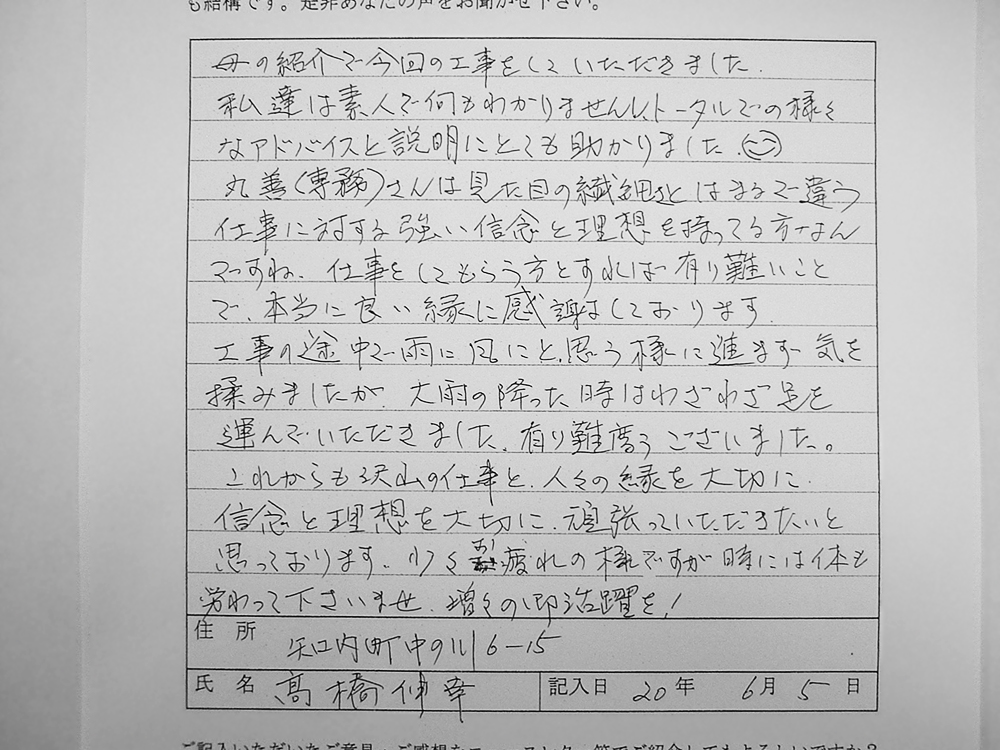 も結構です。是非あなたの声をお聞かせ下さい。
母の紹介で今回の工事をしていただきました.
私達は素人で何もわかりませんし、トータルでの様々
なアドバイスと説明にとても助かりました.
丸善(専務)さんは見た目の繊細さとはまるで違う
仕事に対する強い信念と理想を持ってる方なん
ですね. 仕事をしてもらう方とすれば有り難いこと
で、本当に良い縁に感謝しております.
工事の途中で雨に風にと、思う様に進まず気を
揉みましたが、大雨の降った時はわざわざ足を
運んでいただきました. 有り難度うございました。
これからも沢山の仕事と、人々の縁を大切に.
信念と理想を大切に、頑張っていただきたいと
思っております. 少々お疲れの様ですが時には体も
労わって下さいませ. 増々の御活躍を!
住 所 矢口内町中の川16-15
氏 名 髙橋伸幸 記入日 20年 6月 5日